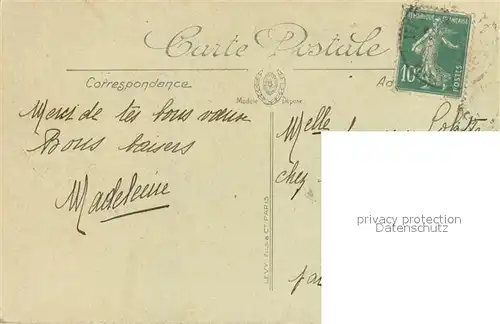 Carte Postale
Correspondance
Modèle Déposé
REPUBLIQUE FRANÇAISE
10c
POSTES
Merci de tes bons vœux
Bons baisers
Madeleine
Melle
chez
LEVY FILS & Cie PARIS
privacy protection
Datenschutz